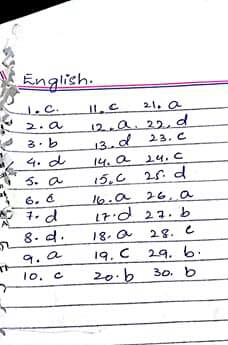 English.
1. c. 11. c 21. a
2. a 12. a. 22. d
3. b 13. d 23. c
4. d 14. a 24. c
5. a 15. c 25. d
6. c 16. a 26. a
7. d 17. d 27. b
8. d. 18. a 28. c
9. a 19. c 29. b.
10. c 20. b 30. b